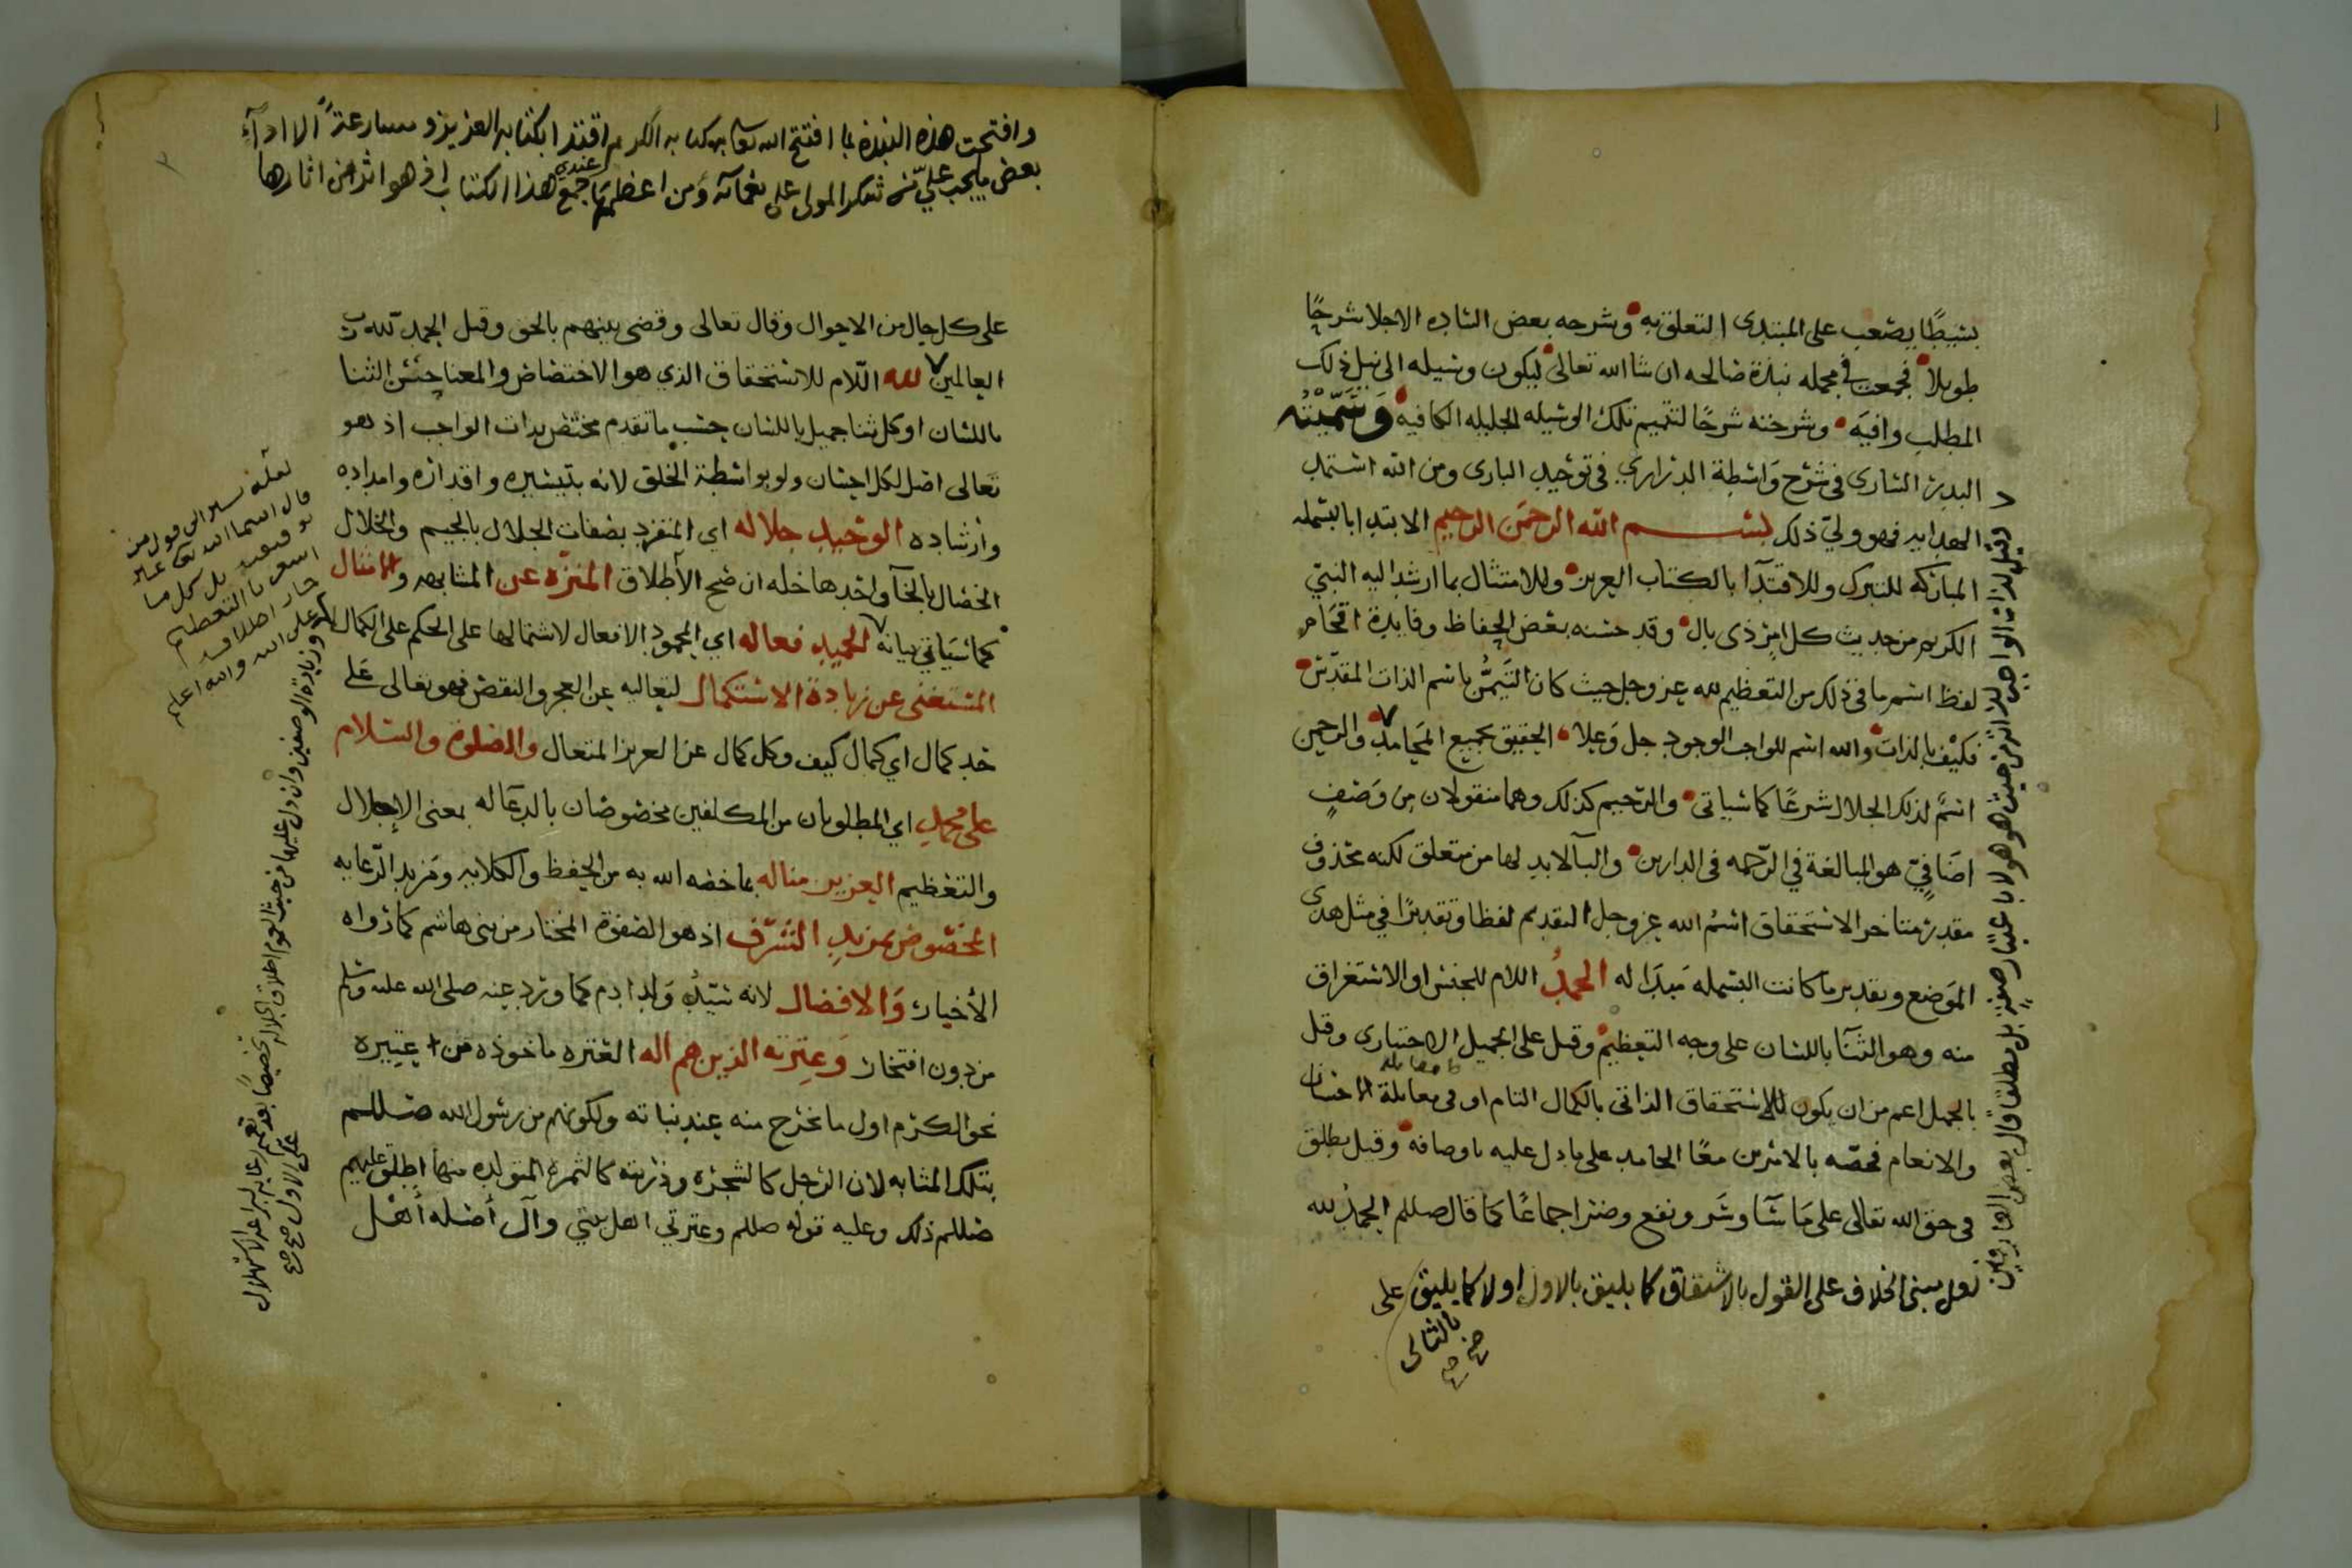 بسيطًا يصعب على المبتدى التعلق به وشرحه بعض الساده الاجلا شرحًا
طويلا فجمعت في مجمله نبذة صالحه ان شا الله تعالى ليكون وسيله الى نيل ذلك
المطلب وافيه وشرحته شرحًا لتتميم تلك الوسيله الجليله الكافيه وسميته
البدر السارى في شرح واسطة الدراري في توحيد البارى ومن الله استمد
الهدايه فهو ولي ذلك بسم الله الرحمن الرحيم الابتدا بالبسمله
المباركه للتبرك وللاقتدآ بالكتاب العزيز وللامتثال بما ارشد اليه النبي
الكريم من حديث كل امرٍ ذى بال وقد حسنه بعض الحفاظ وفايدة اقحام
لفظ اسم ما في ذلك من التعظيم لله عز وجل حيث كان التيمُّن باسم الذات المقدّس
فكيف بالذات والله اسم للواجب الوجود جل وعلا الحقيق بجميع المحامد والرحمن
اسمٌ لذلك الجلال شرعًا كما سياتى والرحيم كذلك وهما منقولان من وصفٍ
اضافيٍّ هو المبالغة في الرحمه في الدارين والبآ لابد لها من متعلق لكنه محذوف
مقدر متاخر لاستحقاق اسمُ الله عز وجل التقديم لفظا وتقديرًا في مثل هذى
الموضع وتقديره ما كانت البسمله مبدَا له الحمدُ اللام للجنس او الاستغراق
منه وهو الثنآ باللسان على وجه التعظيم وقيل على الجميل الاختيارى وقيل
بالجميل اعم من ان يكون للاستحقاق الذاتى بالكمال التام او في مقابلة الاحسان
والانعام فخصّه بالامرين معًا الحامد على ما دل عليه باوصافه وقيل يطلق
في حق الله تعالى على ما سآ وسَر ونفع وضر اجماعًا كما قال صللم الحمدُ لله
لعل مبنى الخلاف على القول بالاشتقاق كما يليق بالاول اولا كما يليق
بالثانى
على
وقيل لذات الواجب لذاته من حيث هو هو لا باعتبار صفةٍ بل مطلقًا قال بعض العارفين
وافتحت هذه النبذة بما افتتح الله تعالى به كتابه الكريم اقتدا بكتابه العزيز ومسارعةً الا ادآء
بعض ما يجب عليّ من شكر المولى على نعمآئه ومن اعظمها عندى جمع هذا الكتاب اذ هو اثر من اثارها
على كل حال من الاحوال وقال تعالى وقضى بينهم بالحق وقيل الحمد لله رب
العالمين لله اللام للاستحقاق الذي هو الاختصاص والمعنا جنس الثنا
باللسان او كل ثنا جميل باللسان حسب ما تقدم مختص بذات الواجب اذ هو
تعالى اصل لكل احسان ولو بواسطة الخلق لانه بتيسيره واقداره وامداده
وارشاده الوحيد جلاله اي المتفرد بصفات الجلال بالجيم والخلال
الخصال بالخآ واحدها خله ان صح الأطلاق المنزه عن المشابهه والامثال
كما سياتي بيانه الحميد فعاله اي المحمود الافعال لاشتمالها على الحكم على الكمال
المستغنى عن زيادة الاستكمال لتعاليه عن العجز والنقص فهو تعالى على
حد كمال اي كمال كيف وكل كمال عن العزيز المتعال والصلوة والسلام
على محمدٍ اي المطلوبان من المكلفين مخصوصان بالدعا له بمعنى الاجلال
والتعظيم العزيز مناله بما خصه الله به من الحفظ والكلايه ومزيد الرعايه
المخصوص بمزيد الشرف اذ هو الصفوة المختار من بنى هاشم كما رواه
الأخيار والافضال لانه سيّد ولد ادم كما ورد عنه صلى الله عليه وسلم
من دون افتخار وعترته الذين هم اله العتره ماخوذه من عتيره
نحو الكرم اول ما تخرج منه عند نباته ولكونهم من رسول الله صللم
بتلك المثابه لان الرجل كالشجره وذريته كالثمرة المتولده منها اطلق عليهم
صللم ذلك وعليه قوله صللم وعترتي اهل بيتي وآل أصله أهل
لعله يشير الى قول من
قال اسما الله تعالى غير
توقيفيه بل كل ما
اشعر بالتعظيم
جاز اطلاقه
على الله والله اعلم